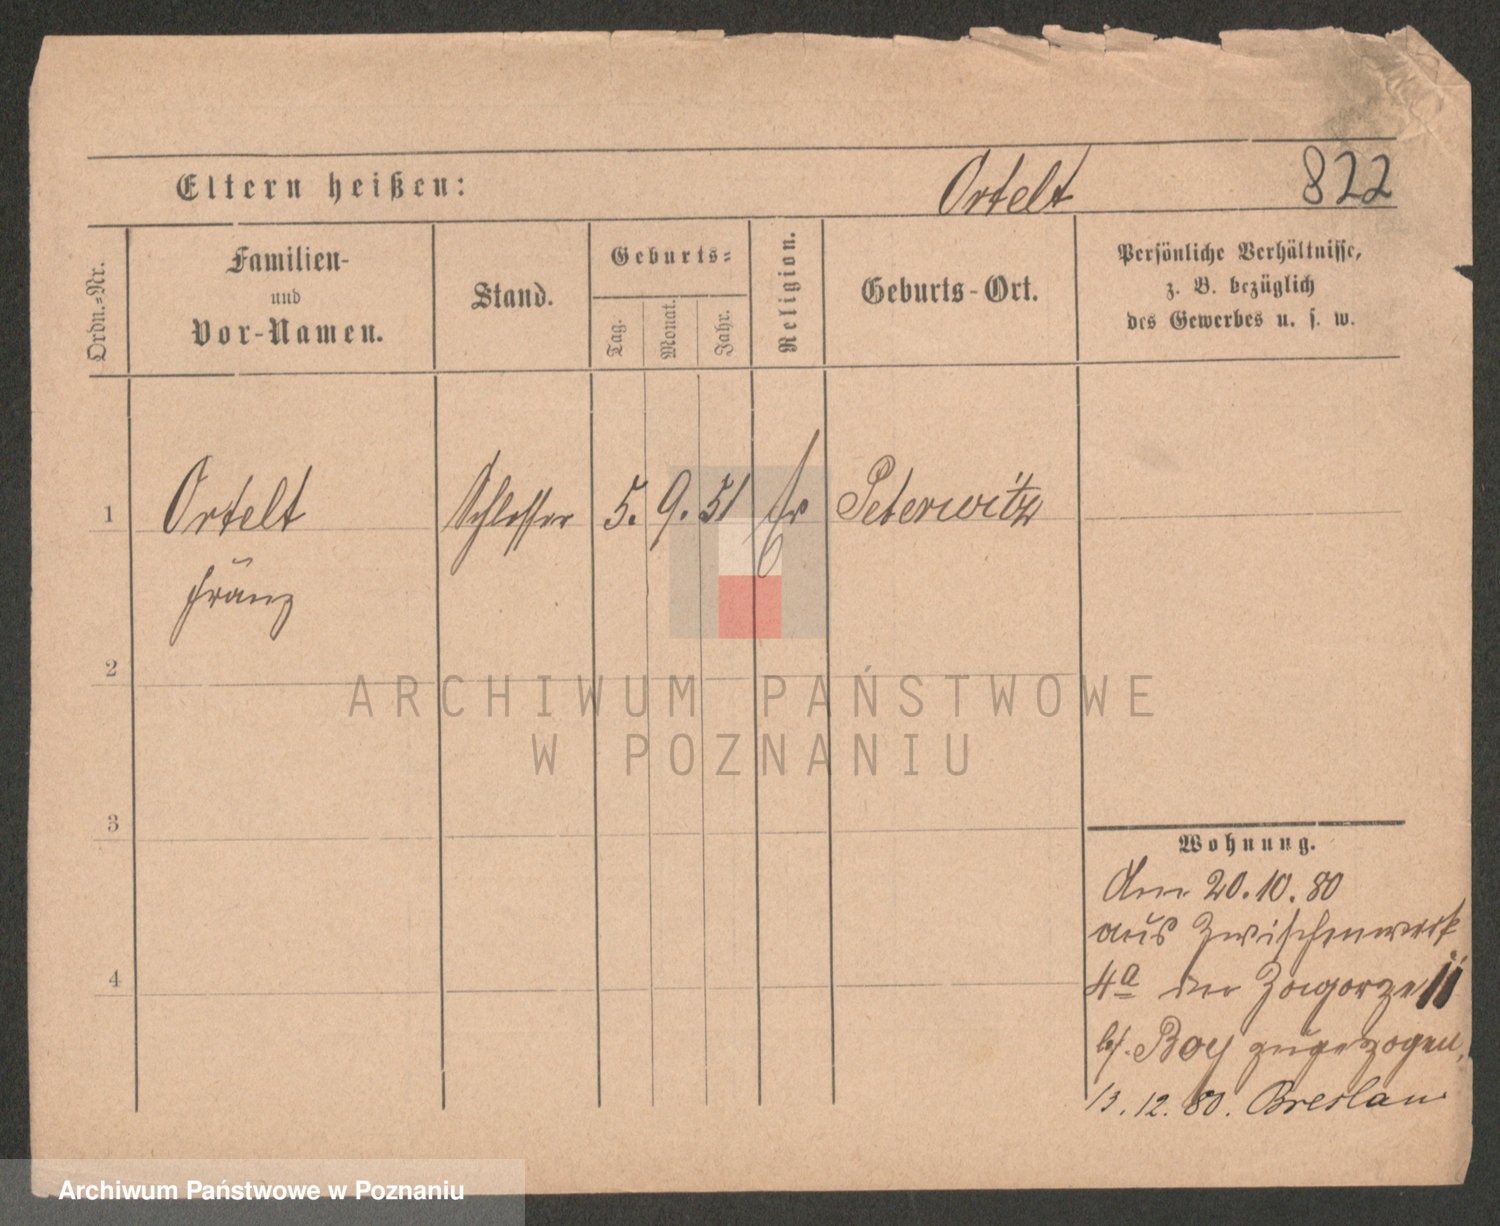 Eltern heißen: Ortelt 822
Ordn.-Nr.
Familien-
und
Vor-Namen.
Stand.
Geburts-
Tag.
Monat.
Jahr.
Religion.
Geburts-Ort.
Persönliche Verhältnisse,
z. B. bezüglich
des Gewerbes u. s. w.
1 Ortelt Schlosser 5. 9. 51 Peterwitz
Franz
2
3
4
Wohnung.
20.10.80
aus Zwischenwerk
4a der Zagorze 11
b/. Boy zugezogen,
13.12.80. Breslau
ARCHIWUM PAŃSTWOWE
W POZNANIU
Archiwum Państwowe w Poznaniu